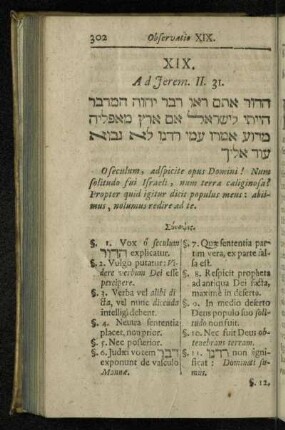 302 Observatio XIX.
XIX.
Ad Jerem. II. 31.
הדור אתם ראו דבר יהוה המדבר
הייתי לישראל אם ארץ מאפליה
מדוע אמרו עמי רדנו לא נבוא
עוד אליך
O seculum, adspicite opus Domini! Num
solitudo fui Israeli, num terra caliginosa?
Propter quid igitur dicit populus meus: abii-
mus, nolumus redire ad te.
Σύνοψις.
§. 1. Vox ô seculum
הדור explicatur.
§. 2. Vulgo putatur: Vi-
dere verbum Dei esse
percipere.
§. 3. Verba vel alibi di-
cta, vel nunc dicenda
intelligi debent.
§. 4. Neutra sententia
placet, nonprior.
§. 5. Nec posterior.
§. 6. Judæi vocem דבר
exponunt de vasculo
Mannæ.
§. 7. Quæ sententia par-
tim vera, ex parte fal-
sa est.
§. 8. Respicit propheta
ad antiqua Dei facta,
maxime in deserto.
§. 9. In medio deserto
Deus populo suo soli-
tudo non fuit.
§. 10. Nec fuit Deus ob-
tenebram terram.
§. 11. רדנו non signi-
ficat: Dominati su-
mus.
§. 12.